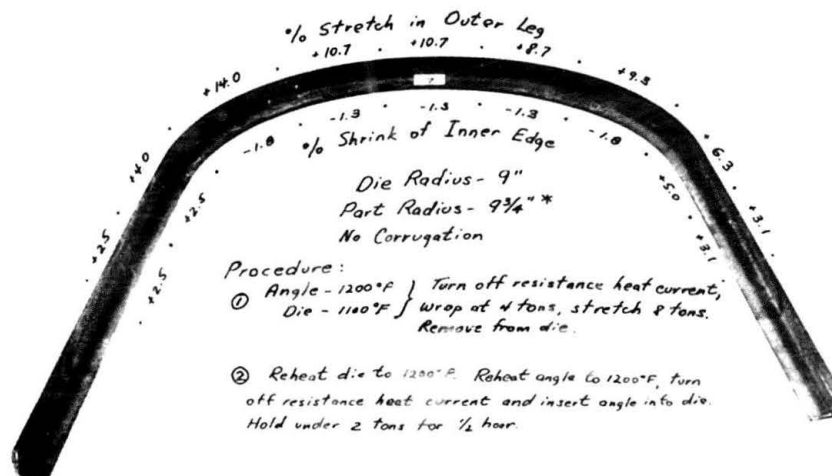 % Stretch in Outer Leg
+2.5 +4.0 +14.0 +10.7 +10.7 +8.7 +9.3 +6.3 +3.1
7
+2.5 +2.5 -1.8 -1.3 -1.3 -1.3 -1.8 +5.0 +3.1
% Shrink of Inner Edge
Die Radius - 9"
Part Radius - 9¾" *
No Corrugation
Procedure:
① Angle - 1200°F } Turn off resistance heat current,
Die - 1100°F wrap at 4 tons, stretch 8 tons.
Remove from die.
② Reheat die to 1200°F. Reheat angle to 1200°F, turn
off resistance heat current and insert angle into die.
Hold under 2 tons for ½ hour.